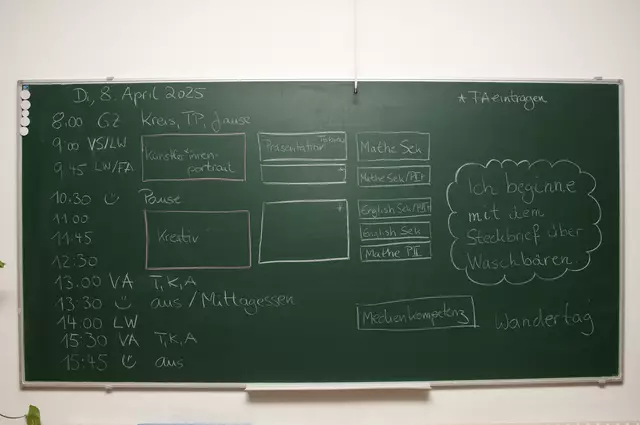 Di, 8. April 2025
* TA eintragen
8:00 GZ Kreis, TP, Jause
9:00 VS/LW
9:45 LW/FA
Künstler*innen-
portrait
Präsentation
Mathe Sek
Mathe Sek/PII+
10:30 Pause
11:00
11:45
12:30
Kreativ
English Sek
Mathe PII
Ich beginne
mit dem
Steckbrief über
Waschbären.
13:00 VA T,K,A
13:30 aus / Mittagessen
14:00 LW
15:30 VA T,K,A
15:45 aus
Medienkompetenz
Wandertag